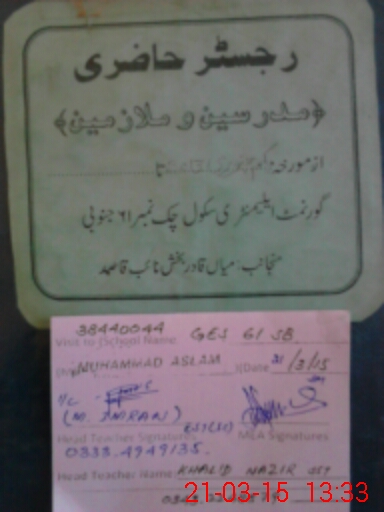 رجسٹر حاضری
﴿مدرسین و ملازمین﴾
از مورخہ یکم تا
گورنمنٹ ایلیمنٹری سکول چک نمبر ۶۱ جنوبی
منجانب: میاں قادر بخش نائب قاصد
38440044 GES 61 SB
Visit to (School Name
MUHAMMAD ASLAM (Date 21/3/15
I/C
(M. IMRAN) EST(SV)
Head Teacher Signatures MEA Signatures
0333-4949135.
Head Teacher Name: KHALID NAZIR SST
21-03-15 13:33